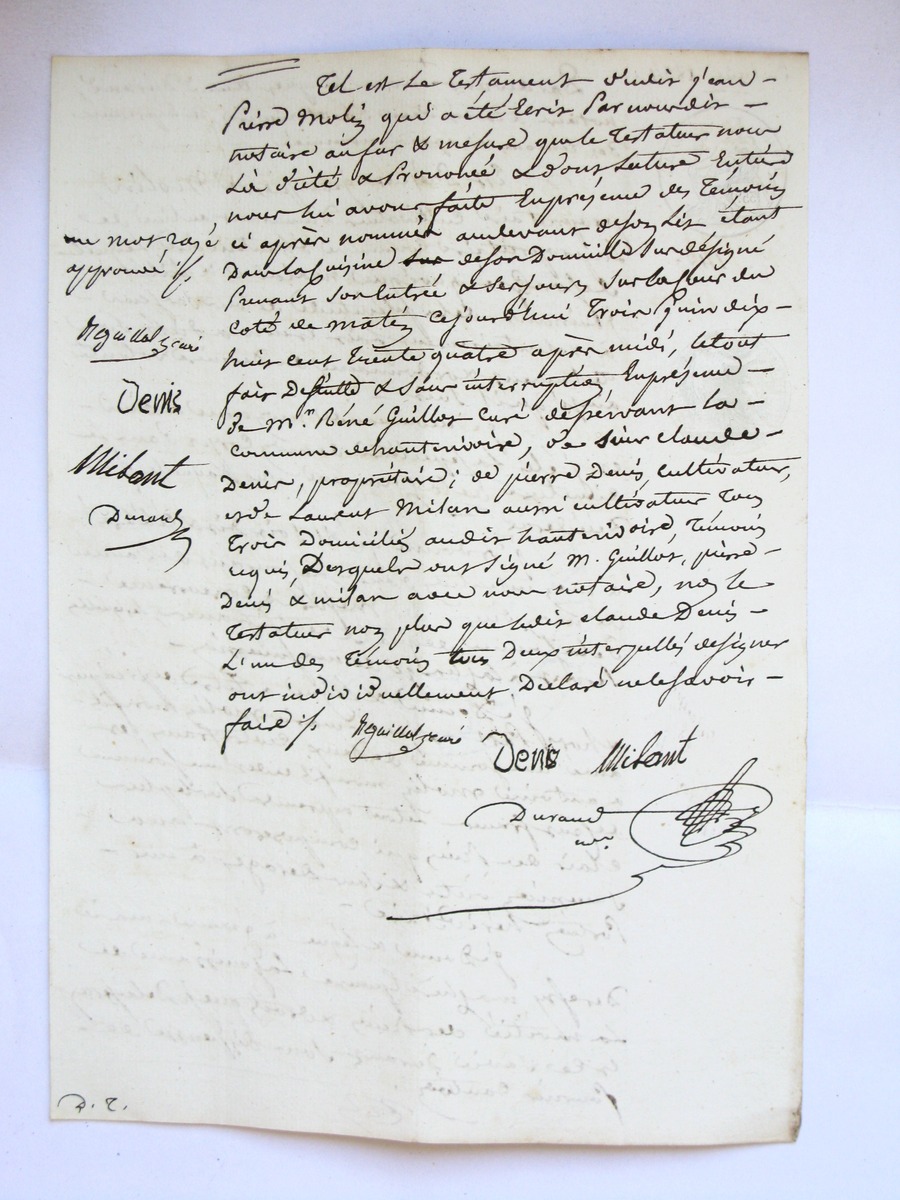 Tel est Le Testament dudit jean
Pierre Moliz qui a été Ecrit Par nous dit
notaire au fur & mesure que le Testateur nous
L'a dicté & Prononcé & dont Lecture Entière
nous lui avons faite En présence des Témoins
ci après nommés au devant de son Lit étant
Dans la Cuisine sur de son Domicile Sus désigné
Prenant Son Entrée & ses jours Sur la Cour du
coté de matin Cejourd'hui Trois Juin dix
huit cent trente quatre après midi, le tout
fait De Suitte & Sans interruption, En présence
de Mr. Réné Guillot Curé desservant la
commune de hauterivoire, de Sieur claude
Denis, propriétaire; de pierre Denis, cultivateur,
et de Laurent Milan aussi cultivateur Tous
Trois Domiciliés audit hauterivoire, Témoins
requis, Desquels ont Signé M. Guillot, pierre
Denis & milan avec nous notaire, non le
Testateur non plus que ledit claude Denis
L'un des Témoins tous Deux interpellés de signer
ont individuellement Déclaré ne le savoir
faire ./.
RGuillot curé
Denis Milant
Durand
nre.
un mot rayé
approuvé ./.
RGuillot curé
Denis
Milant
Durand
D. T.